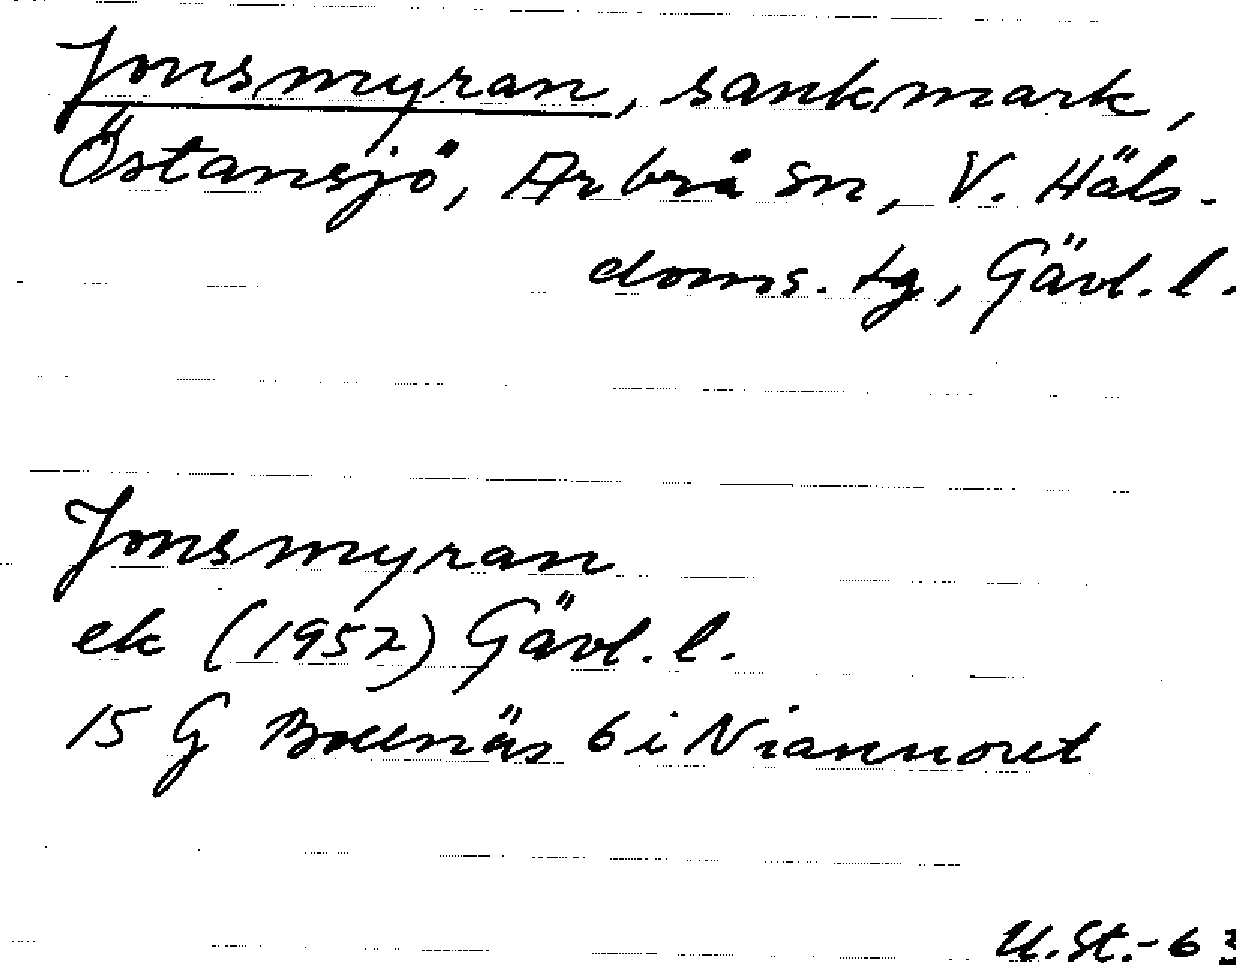 Jonsmyran, sankmark,
Östansjö, Arbrå sn, V. Häls-
doms. tg, Gävl. l.
Jonsmyran
ek (1952) Gävl. l.
15 G Bollnäs 6 i Niannoret
U.St.-63